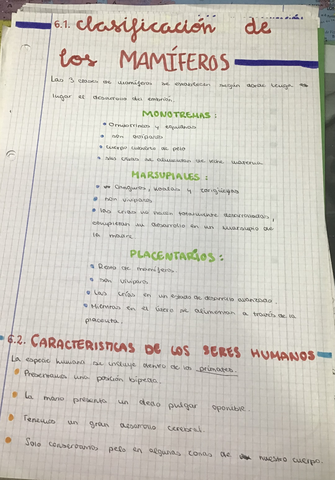 6.1. Clasificación de
los MAMÍFEROS
Las 3 clases de mamíferos se establecen según donde tenga
lugar el desarrollo del embrión.
MONOTREMAS:
Ornitorrincos y equidnas
son ovíparos
cuerpo cubierto de pelo
sus crías se alimentan de leche materna
MARSUPIALES:
Canguros, koalas y zarigüeyas
son vivíparos
las crías no nacen totalmente desarrolladas,
completan su desarrollo en un marsupio de
la madre.
PLACENTARIOS:
Resto de mamíferos.
son vivíparos
Las crías en un estado de desarrollo avanzado.
Mientras en el útero se alimentan a través de la
placenta.
6.2. CARACTERISTICAS DE LOS SERES HUMANOS
La especie humana se incluye dentro de los primates.
Presentamos una posición bípeda.
La mano presenta un dedo pulgar oponible.
Tenemos un gran desarrollo cerebral.
Solo conservamos pelo en algunas zonas de nuestro cuerpo.